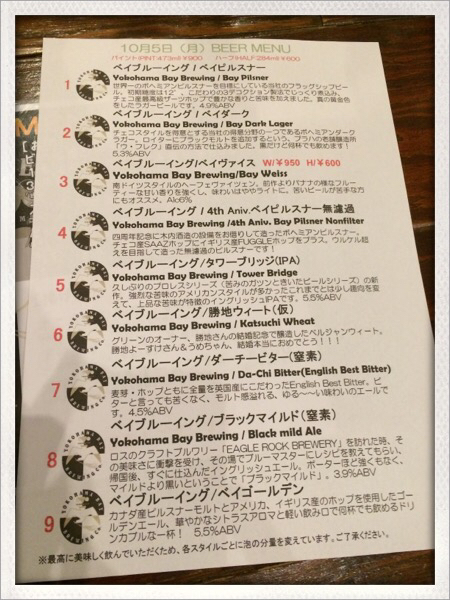 10月5日（月）BEER MENU
パイント/PINT 473ml ¥900　ハーフ/HALF 284ml ¥600
1
ベイブルーイング / ベイピルスナー
Yokohama Bay Brewing / Bay Pilsner
世界一のボヘミアンピルスナーを目標にしている当社のフラッグシップビール。初期糖度は12°、こだわりの3デコクション製法でじっくり煮込み、
チェコ産最高級ザーツホップで豊かな香りと苦味を加えました。真の黄金色をしたラガービールです。4.9%ABV
2
ベイブルーイング / ベイダーク
Yokohama Bay Brewing / Bay Dark Lager
チェコスタイルを得意とする当社の得意分野の一つであるボヘミアンダークラガー。ロイターにブラックモルトを追加するという、プラハの老舗醸造所
「ウ・フレク」直伝の方法で仕込みました。黒だけど何杯でも飲めます！
5.3%ABV
3
ベイブルーイング/ベイヴァイス W/￥950 H/￥600
Yokohama Bay Brewing/Bay Weiss
南ドイツスタイルのヘーフェヴァイツェン。前作よりバナナの様なフルーティーな甘い香りを強くし、味わいはややライトに。苦いビールが苦手な方にもオススメ。Alc6%
4
ベイブルーイング / 4th Aniv.ベイピルスナー無濾過
Yokohama Bay Brewing /4th Aniv. Bay Pilsner Nonfilter
四周年記念に木内酒造の設備をお借りして造ったボヘミアンピルスナー。
チェコ産SAAZホップにイギリス産FUGGLEホップをプラス。ウルケル超えを目指して造った無濾過のピルスナーです！
5
ベイブルーイング/タワーブリッジ(IPA)
Yokohama Bay Brewing / Tower Bridge
久しぶりのプロレスシリーズ（苦みのガツンときいたビールシリーズ）の新作。強烈な苦味のアメリカンスタイルが多かったこれまでとは少し趣向を変えて、上品な苦味が特徴のイングリッシュIPAです。5.5%ABV
6
ベイブルーイング/勝地ウィート(仮)
Yokohama Bay Brewing / Katsuchi Wheat
グリーンのオーナー、勝地さんの結婚記念で醸造したベルジャンウィート。
勝地よーすけさん＆うめちゃん、結婚本当におめでとう！！！
7
ベイブルーイング/ダーチービター(窒素)
Yokohama Bay Brewing / Da-Chi Bitter(English Best Bitter)
麦芽・ホップともに全量を英国産にこだわったEnglish Best Bitter。ビターと言っても苦くなく、モルト感溢れる、ゆる〜〜い味わいのエールです。4.5%ABV
8
ベイブルーイング/ブラックマイルド(窒素)
Yokohama Bay Brewing / Black mild Ale
ロスのクラフトブルワリー「EAGLE ROCK BREWERY」を訪れた時、その美味さに衝撃を受け、その場でブルーマスターにレシピを教えてもらい、帰国後、すぐに仕込んだイングリッシュエール。ポーターほど強くもなく、マイルドより黒いということで「ブラックマイルド」。3.9%ABV
9
ベイブルーイング/ベイゴールデン
カナダ産ピルスナーモルトとアメリカ、イギリス産のホップを使用したゴールデンエール、華やかなシトラスアロマと軽い飲み口で何杯でも飲めるドリンカブルな一杯！ 5.5%ABV
※最高に美味しく飲んでいただくため、各スタイルごとに泡の分量を変えています。ご了承ください。